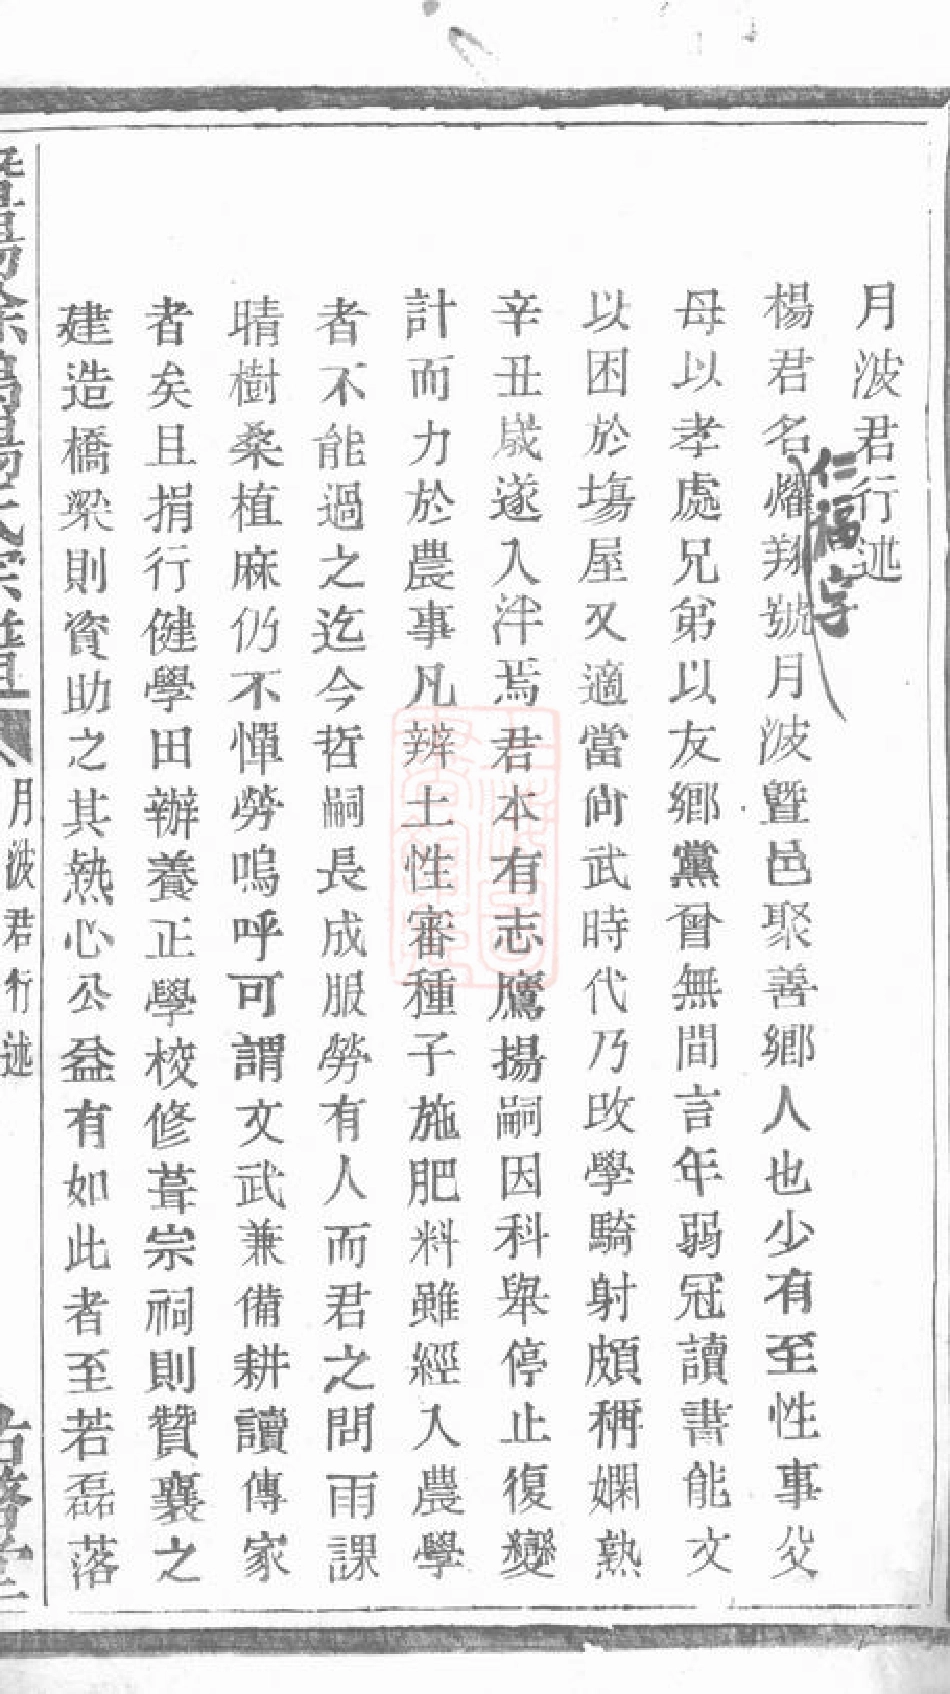 月波君行述
楊君名燿翔號月波暨邑聚善鄉人也少有至性事父
仁福字
母以孝處兄弟以友鄉黨曾無間言年弱冠讀書能文
以困於塲屋又適當尙武時代乃改學騎射頗稱嫻熟
辛丑歲遂入泮焉君本有志鷹揚嗣因科舉停止復變
計而力於農事凡辨土性審種子施肥料雖經入農學
者不能過之迄今哲嗣長成服勞有人而君之問雨課
晴樹桑植麻仍不憚勞嗚呼可謂文武兼備耕讀傳家
者矣且捐行健學田辦養正學校修葺宗祠則贊襄之
建造橋梁則資助之其熱心公益有如此者至若磊落
月波君行述